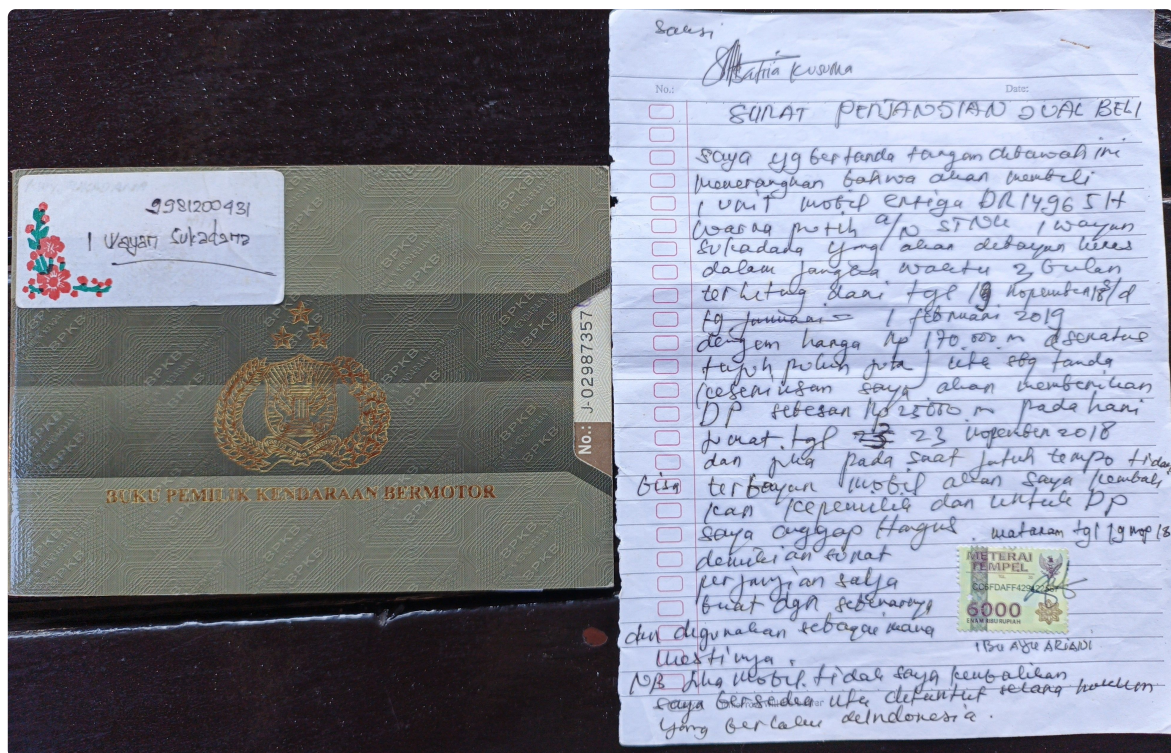 9981200431
I Wayan Sukadana
BUKU PEMILIK KENDARAAN BERMOTOR
No.: J-02987357
Saksi
Satria Kusuma
No.:
Date:
SURAT PERJANJIAN JUAL BELI
saya yg bertanda tangan dibawah ini
menerangkan bahwa akan membeli
1 unit mobil ertiga DR 1496 SH
warna putih a/n STNK I wayan
sukadana yang akan dibayar lunas
dalam jangka waktu 2 bulan
terhitung dari tgl 19 Nopember 18 s/d
1 februari 2019
dengan harga Rp 170.000.
tujuh puluh juta) utk sbg tanda
keseriusan saya akan memberikan
DP sebesar Rp 25.000. pada hari
jumat. tgl 23 Nopember 2018
dan jika pada saat jatuh tempo tidak
bisa terbayar mobil akan saya kembali
kan kepemilik dan untuk DP
saya anggap Hangus. mataram tgl 19 nop 18
demikian surat
perjanjian saya
buat dgn sebenarnya
dan digunakan sebagai mana
mestinya.
METERAI
TEMPEL
6000
ENAM RIBU RUPIAH
IBU AYU ARIANI
NB jika mobil tidak saya kembalikan
saya bersedia utk dituntut hukum
yang berlaku diindonesia.